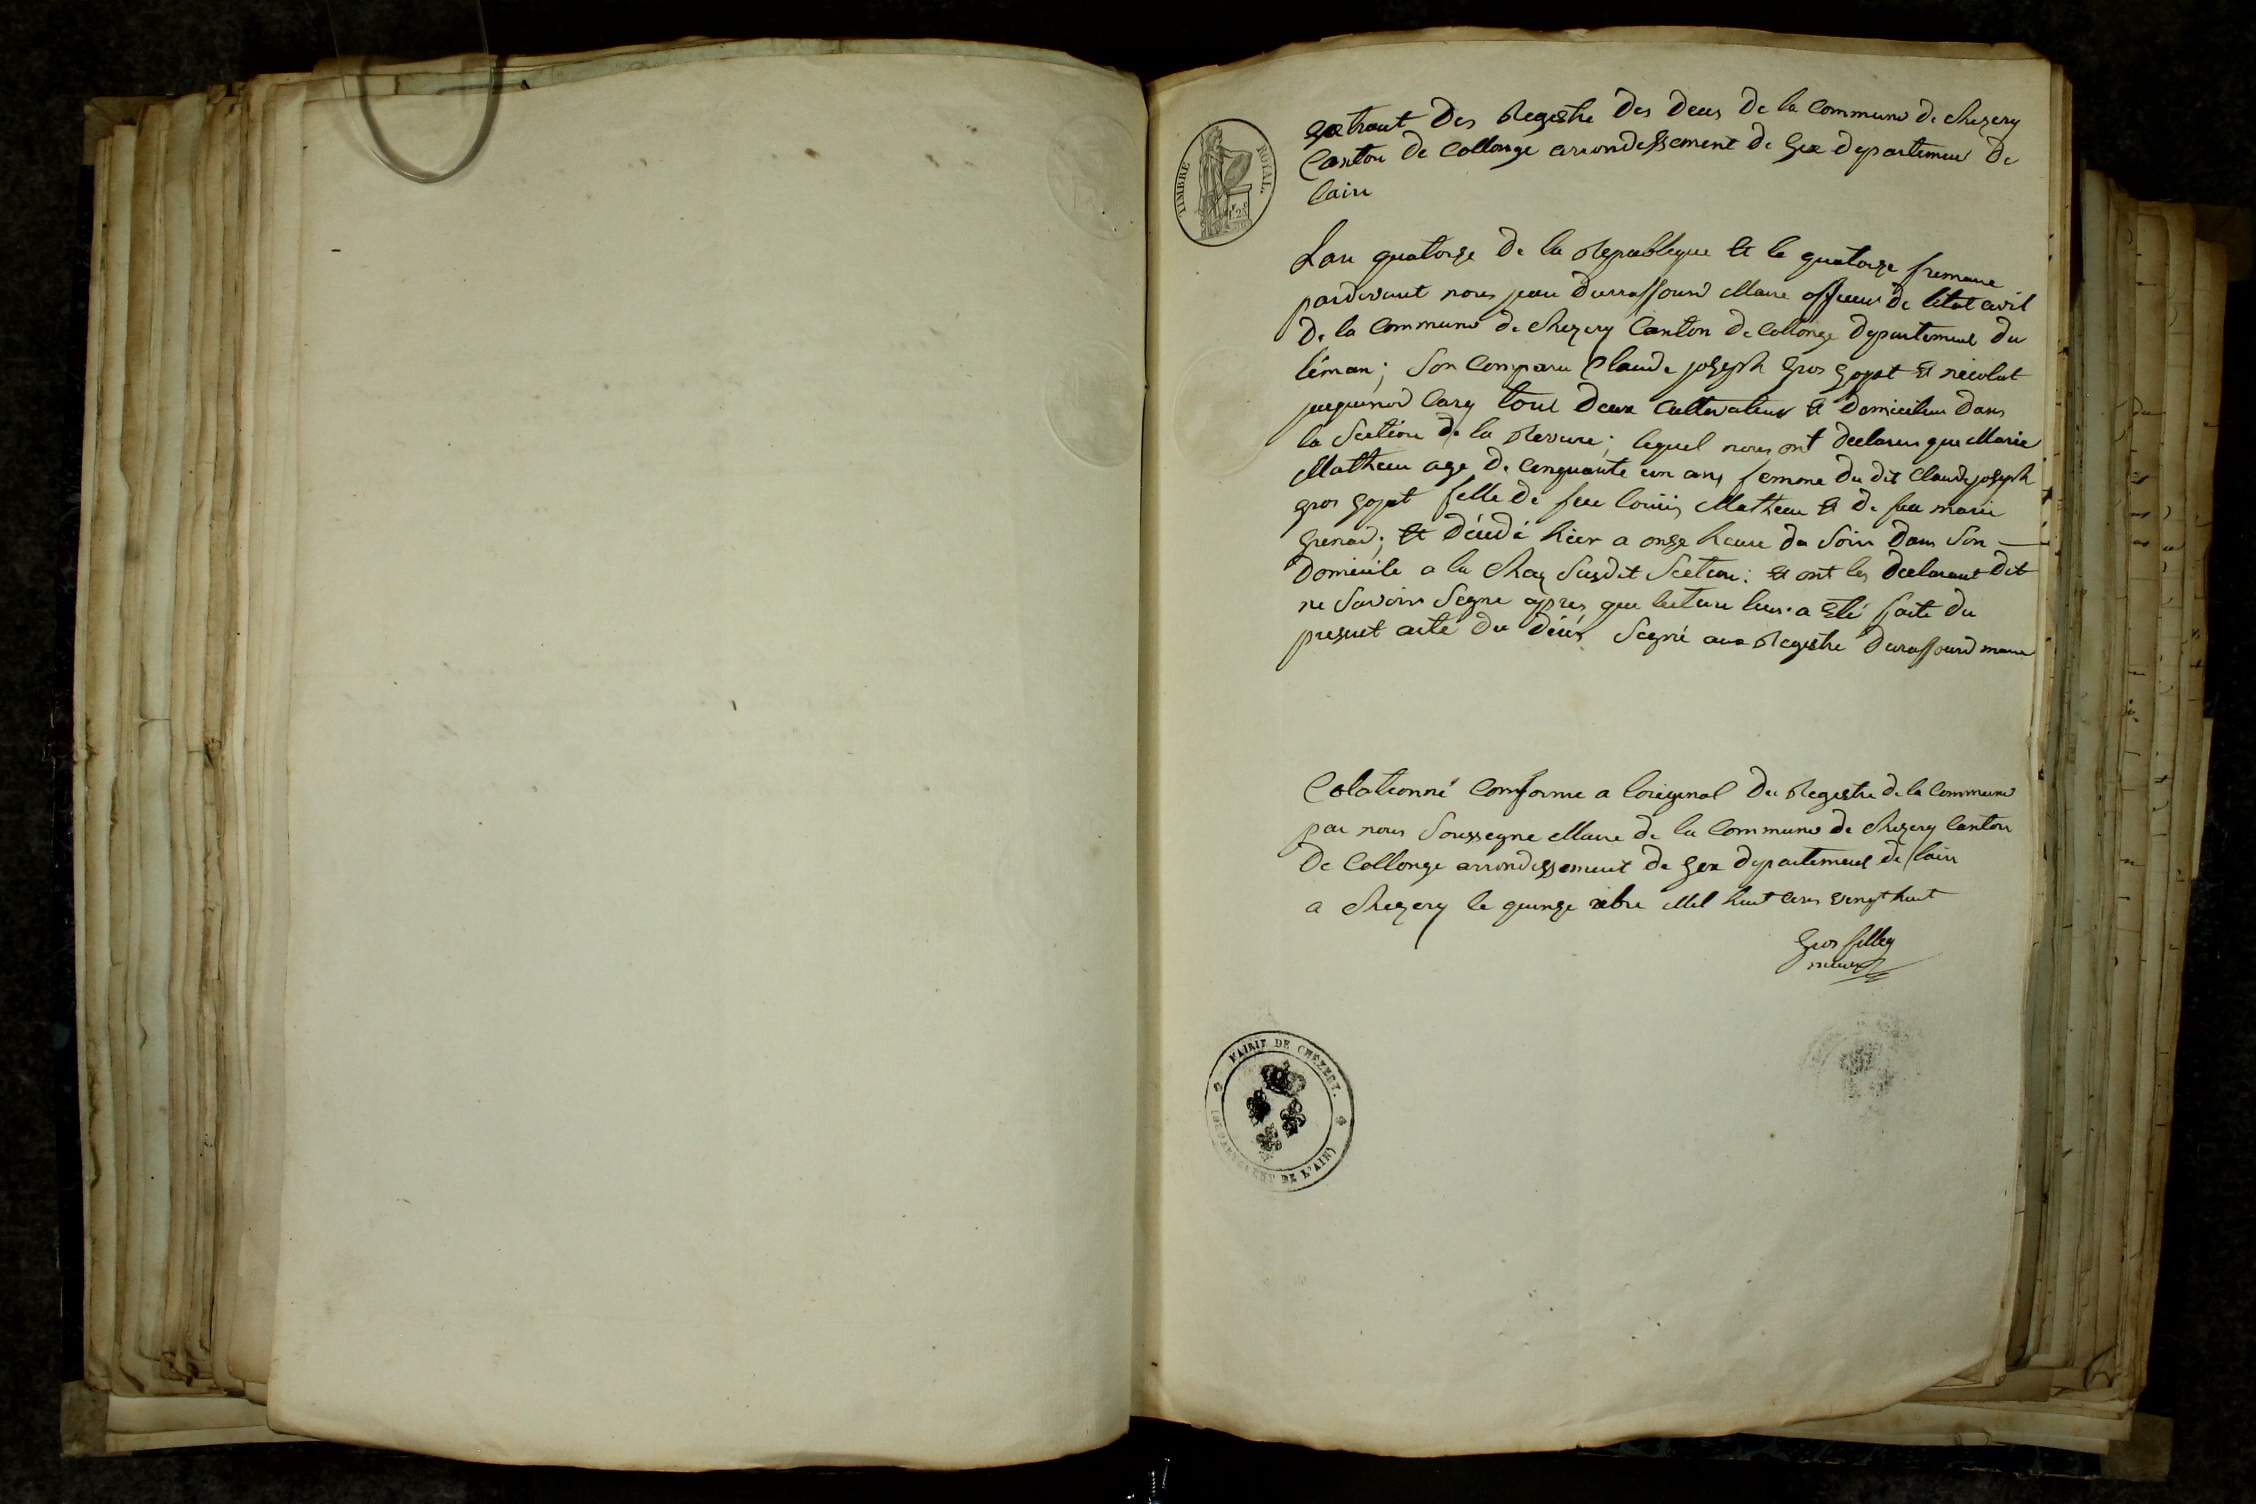 TIMBRE ROYAL.
1f 25c
Extrait Des Registre Des Deces De la Commune De Chezery
Canton De Collonge arrondissement De Gex Departement De
lain
Lan quatorze De la Republique Et le quatorze frimaire
pardevant nous jean Durraffourd Maire officier De létat civil
De la Commune De Chezery Canton De Collonge Departement Du
léman; Son Comparu Claude joseph Gros Gojat Et nicolat
jacquinod Cary tous Deux Cultivateur Et Domicilier Dans
la Section De la Riviere; lequel nous ont Declarer que Marie
Mathieu age De Cinquante un ans femme Du dit Claude joseph
gros gojat fille De feu louiis Mathieu Et De feu marie
Grenard; Et Décédé hier a onze heure Du Soir Dans Son
Domicile a la Chaz Susdit Section: Et ont les Declarant Dit
ne Savoir Segné apres que lecture leur a Eté faite Du
present acte Du Décés Segné aux Registre Duraffourd maire
Colationné Conforme a loriginal Du Registre De la Commune
par nous Soussegne Maire De la Commune De Chezery Canton
De Collonge arrondissement De Gex Departement De lain
a Chezery le quinze xbre Mil huit Cens vingt huit
Gros filley
maire
MAIRIE DE CHÉZERY.
(DÉPARTEMENT DE L'AIN)